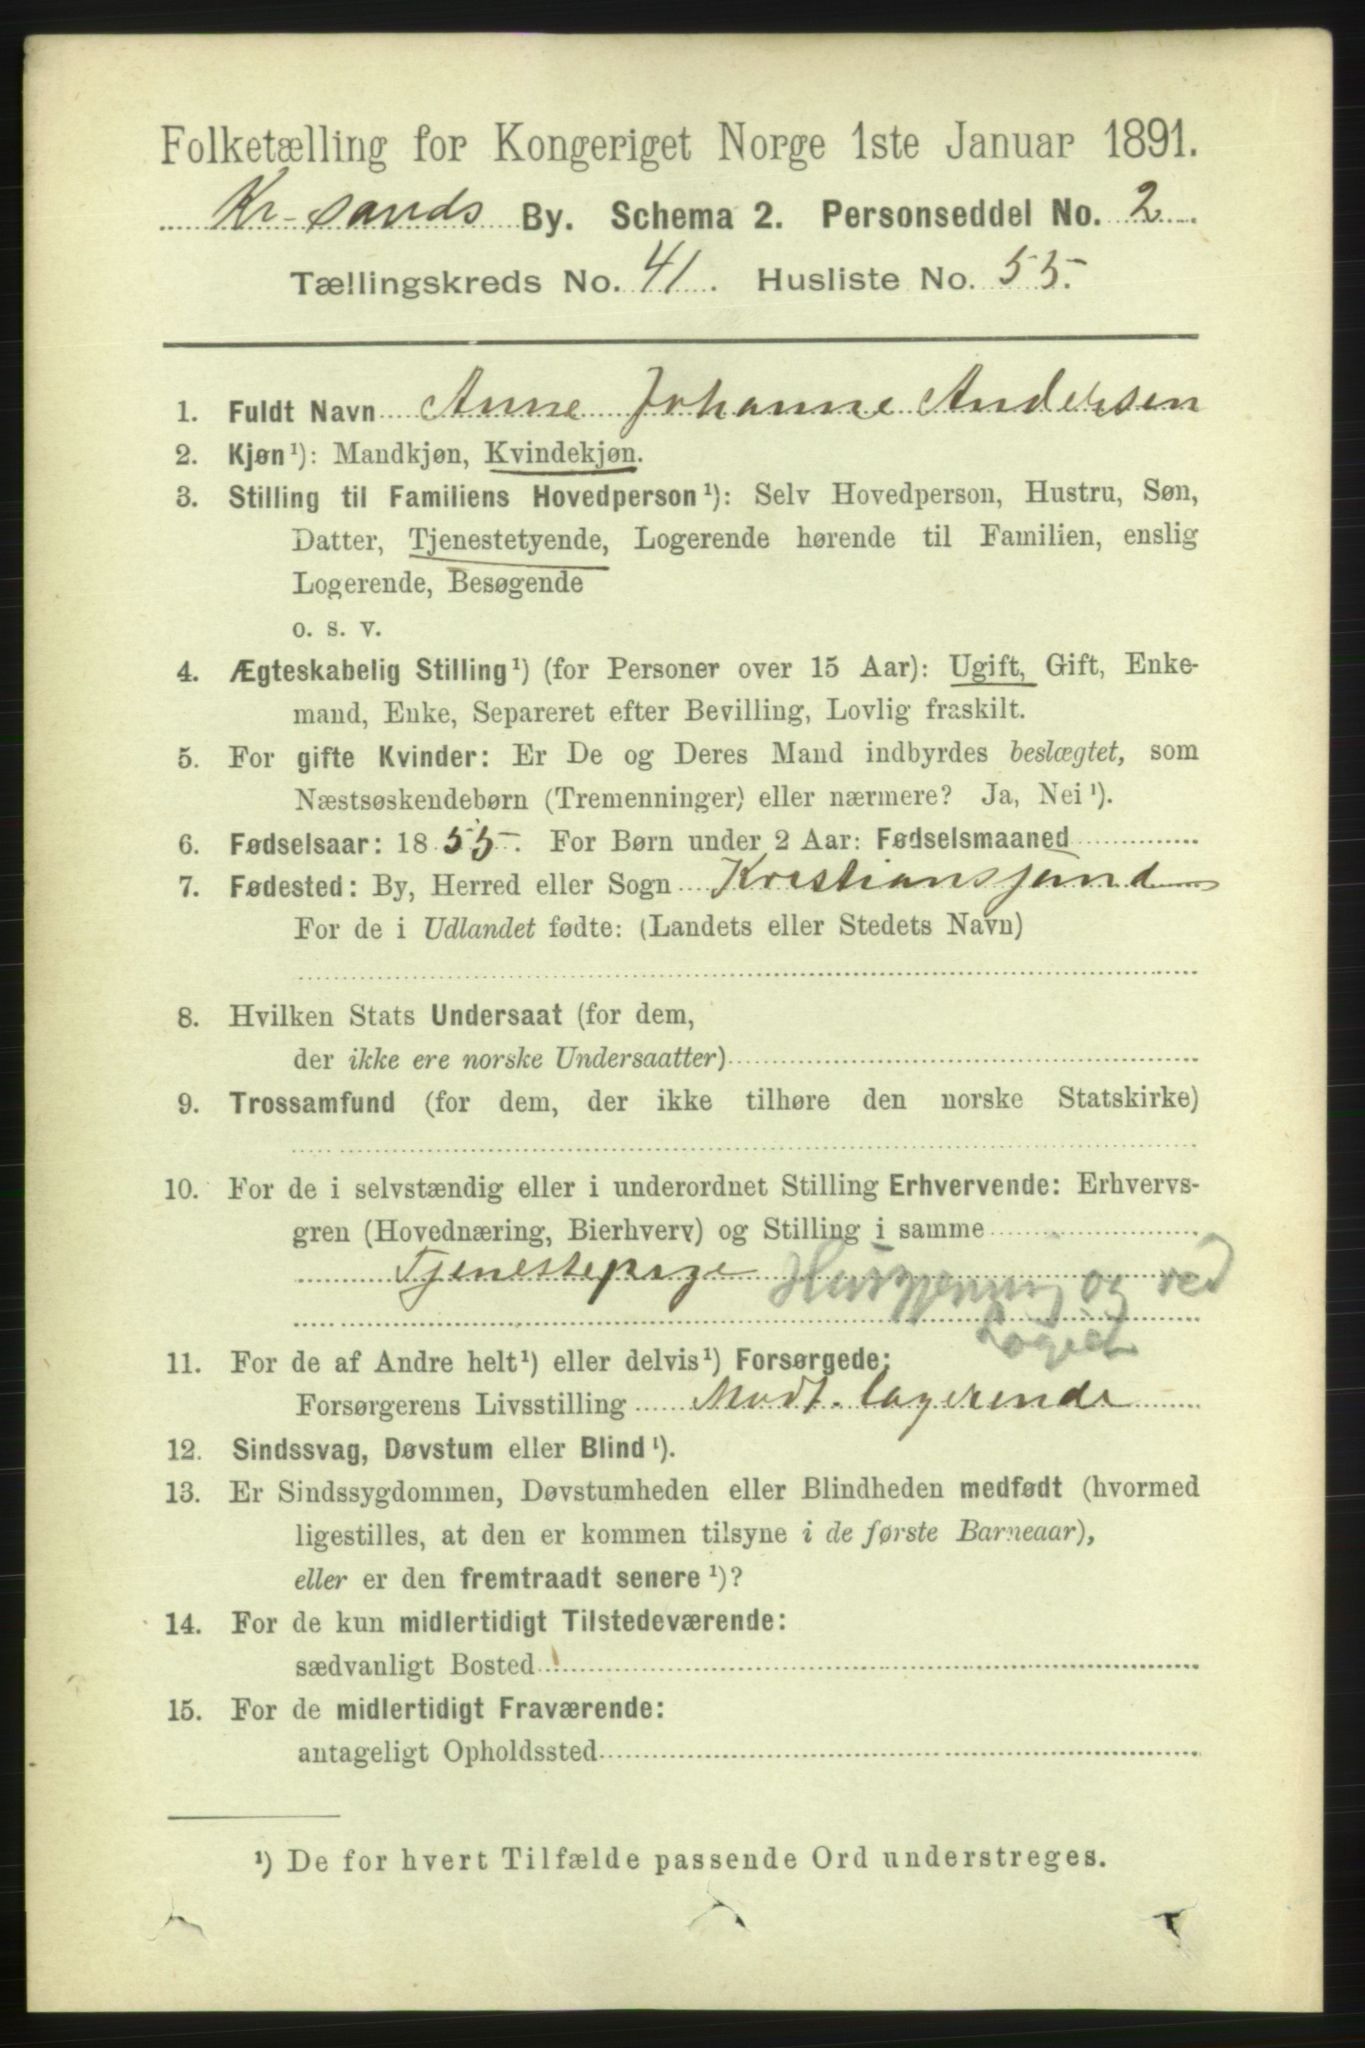 Folketælling for Kongeriget Norge 1ste Januar 1891.
Kr-sands By. Schema 2. Personseddel No. 2
Tællingskreds No. 41. Husliste No. 55.
1. Fuldt Navn Anne Johanne Andersen
2. Kjøn¹): Mandkjøn, Kvindekjøn.
3. Stilling til Familiens Hovedperson¹): Selv Hovedperson, Hustru, Søn,
Datter, Tjenestetyende, Logerende hørende til Familien, enslig
Logerende, Besøgende
o. s. v.
4. Ægteskabelig Stilling¹) (for Personer over 15 Aar): Ugift, Gift, Enke-
mand, Enke, Separeret efter Bevilling, Lovlig fraskilt.
5. For gifte Kvinder: Er De og Deres Mand indbyrdes beslægtet, som
Næstsøskendebørn (Tremenninger) eller nærmere? Ja, Nei¹).
6. Fødselsaar: 1855. For Børn under 2 Aar: Fødselsmaaned
7. Fødested: By, Herred eller Sogn Kristianssand
For de i Udlandet fødte: (Landets eller Stedets Navn)
8. Hvilken Stats Undersaat (for dem,
der ikke ere norske Undersaatter)
9. Trossamfund (for dem, der ikke tilhøre den norske Statskirke)
10. For de i selvstændig eller i underordnet Stilling Erhvervende: Erhvervs-
gren (Hovednæring, Bierhverv) og Stilling i samme
Tjenestepige Husgjerning og ved
Logier
11. For de af Andre helt¹) eller delvis¹) Forsørgede:
Forsørgerens Livsstilling Modt. logerende
12. Sindssvag, Døvstum eller Blind¹).
13. Er Sindssygdommen, Døvstumheden eller Blindheden medfødt (hvormed
ligestilles, at den er kommen tilsyne i de første Barneaar),
eller er den fremtraadt senere¹)?
14. For de kun midlertidigt Tilstedeværende:
sædvanligt Bosted
15. For de midlertidigt Fraværende:
antageligt Opholdssted
¹) De for hvert Tilfælde passende Ord understreges.